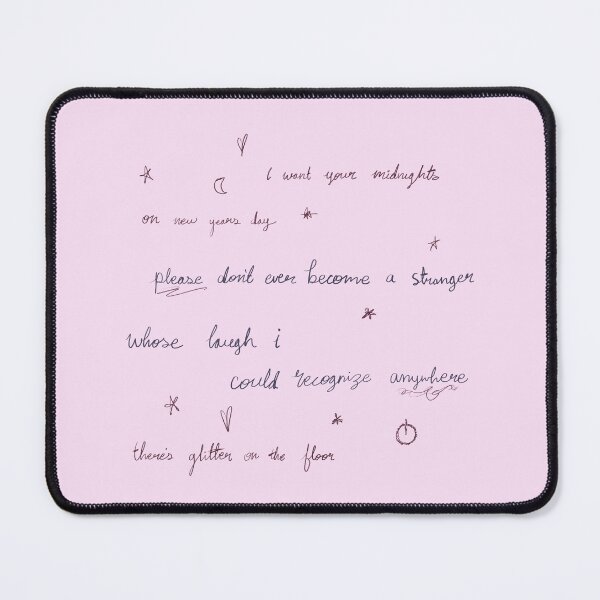 i want your midnights
on new years day
please don't ever become a stranger
whose laugh i
could recognize anywhere
there's glitter on the floor